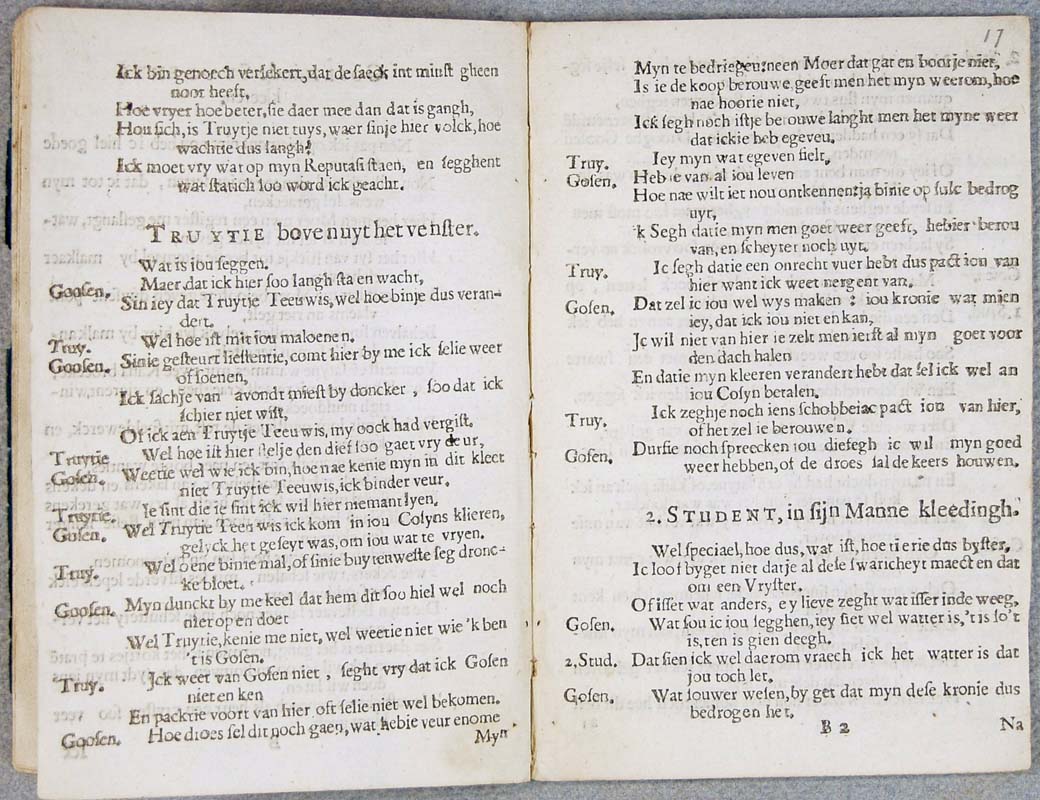 Ick bin genoech versekert, dat de saeck int minst gheen
noot heeft,
Hoe vryer hoe beter, sie daer mee dan dat is gangh,
Hou sich, is Truytje niet tuys, waer sinje hier volck, hoe
wachtie dus langh?
Ick moet vry wat op myn Reputasi staen, en segghent
wat statich soo word ick geacht.
TRUYTIE boven uyt het venster.
Wat is iou seggen.
Goosen. Maer, dat ick hier soo langh sta en wacht,
Sin iey dat Truytje Teeuwis, wel hoe binje dus veran-
dert.
Truy. Wel hoe ist mit iou maloenen.
Goosen. Sinje gesteurt liefstentie, comt hier by me ick selie weer
of soenen,
Ick sachje van avondt miest by doncker, soo dat ick
schier niet wist,
Of ick aen Truytje Teeuwis, my oock had vergist.
Truytie Wel hoe ist hier stelje den dief soo gaet vry deur,
Gosen. Weetie wel wie ick bin, hoe nae kenie myn in dit kleet
niet Truytje Teeuwis, ick binder veur.
Truytie. Je sint die ie sint ick wil hier niemant lyen.
Gosen. Wel Truytie Teeuwis ick kom in iou Cosyns klieren,
gelyck het geseyt was, om iou wat te vryen.
Truy. Wel oene binne mal, of sinie buyten weste seg dronc-
ke bloet.
Goosen. Myn dunckt by me keel dat hem dit soo hiel wel noch
niet open doet
Wel Truytie, kenie me niet, wel weetie niet wie 'k ben
't is Gosen.
Truy. Jck weet van Gosen niet, seght vry dat ick Gosen
niet en ken
En packtie voort van hier, oft selie niet wel bekomen.
Goosen. Hoe droes sel dit noch gaen, wat hebie veur enome
Myn
17
Myn te bedriegen: neen Moer dat gat en boorje niet,
Is ie de koop berouwe, geeft men het myn weerom, hoe
nae hoorie niet,
Ick segh noch istje berouwe langht men het myne weer
dat ickie heb egeven.
Truy. Iey myn wat egeven fielt,
Gosen. Heb ie van al iou leven
Hoe nae wilt iet nou ontkennen: ja binie op sulc bedrog
uyt,
'k Segh datie myn men goet weer geeft, hebier berou
van, en scheyter noch uyt.
Truy. Ic segh datie een onrecht vuer hebt dus pact iou van
hier want ick weet nergent van.
Gosen. Dat zel ic iou wel wys maken : iou kronie wat mien
iey, dat ick iou niet en kan,
Jc wil niet van hier ie zelt men ierst al myn goet voor
den dach halen
En datie myn kleeren verandert hebt dat sel ick wel an
iou Cosyn betalen.
Truy. Ick zeghje noch iens schobbeiac pact iou van hier,
of het zel ie berouwen.
Gosen. Dursie noch spreecken iou diefegh ic wil myn goed
weer hebben, of de droes sal de keers houwen.
2. STUDENT, in sijn Manne kleedingh.
Wel speciael, hoe dus, wat ist, hoe tierie dus byster,
Ic loof byget niet datje al dese swaricheyt maect en dat
om een Vryster.
Of isset wat anders, ey lieve zeght wat isser inde weeg,
Gosen. Wat sou ic iou segghen, iey siet wel watter is, 't is so't
is, ten is gien deegh.
2, Stud. Dat sien ick wel daerom vraech ick het watter is dat
jou toch let,
Gosen. Wat souwer wesen, by get dat myn dese kronie dus
bedrogen het,
B 2
Na